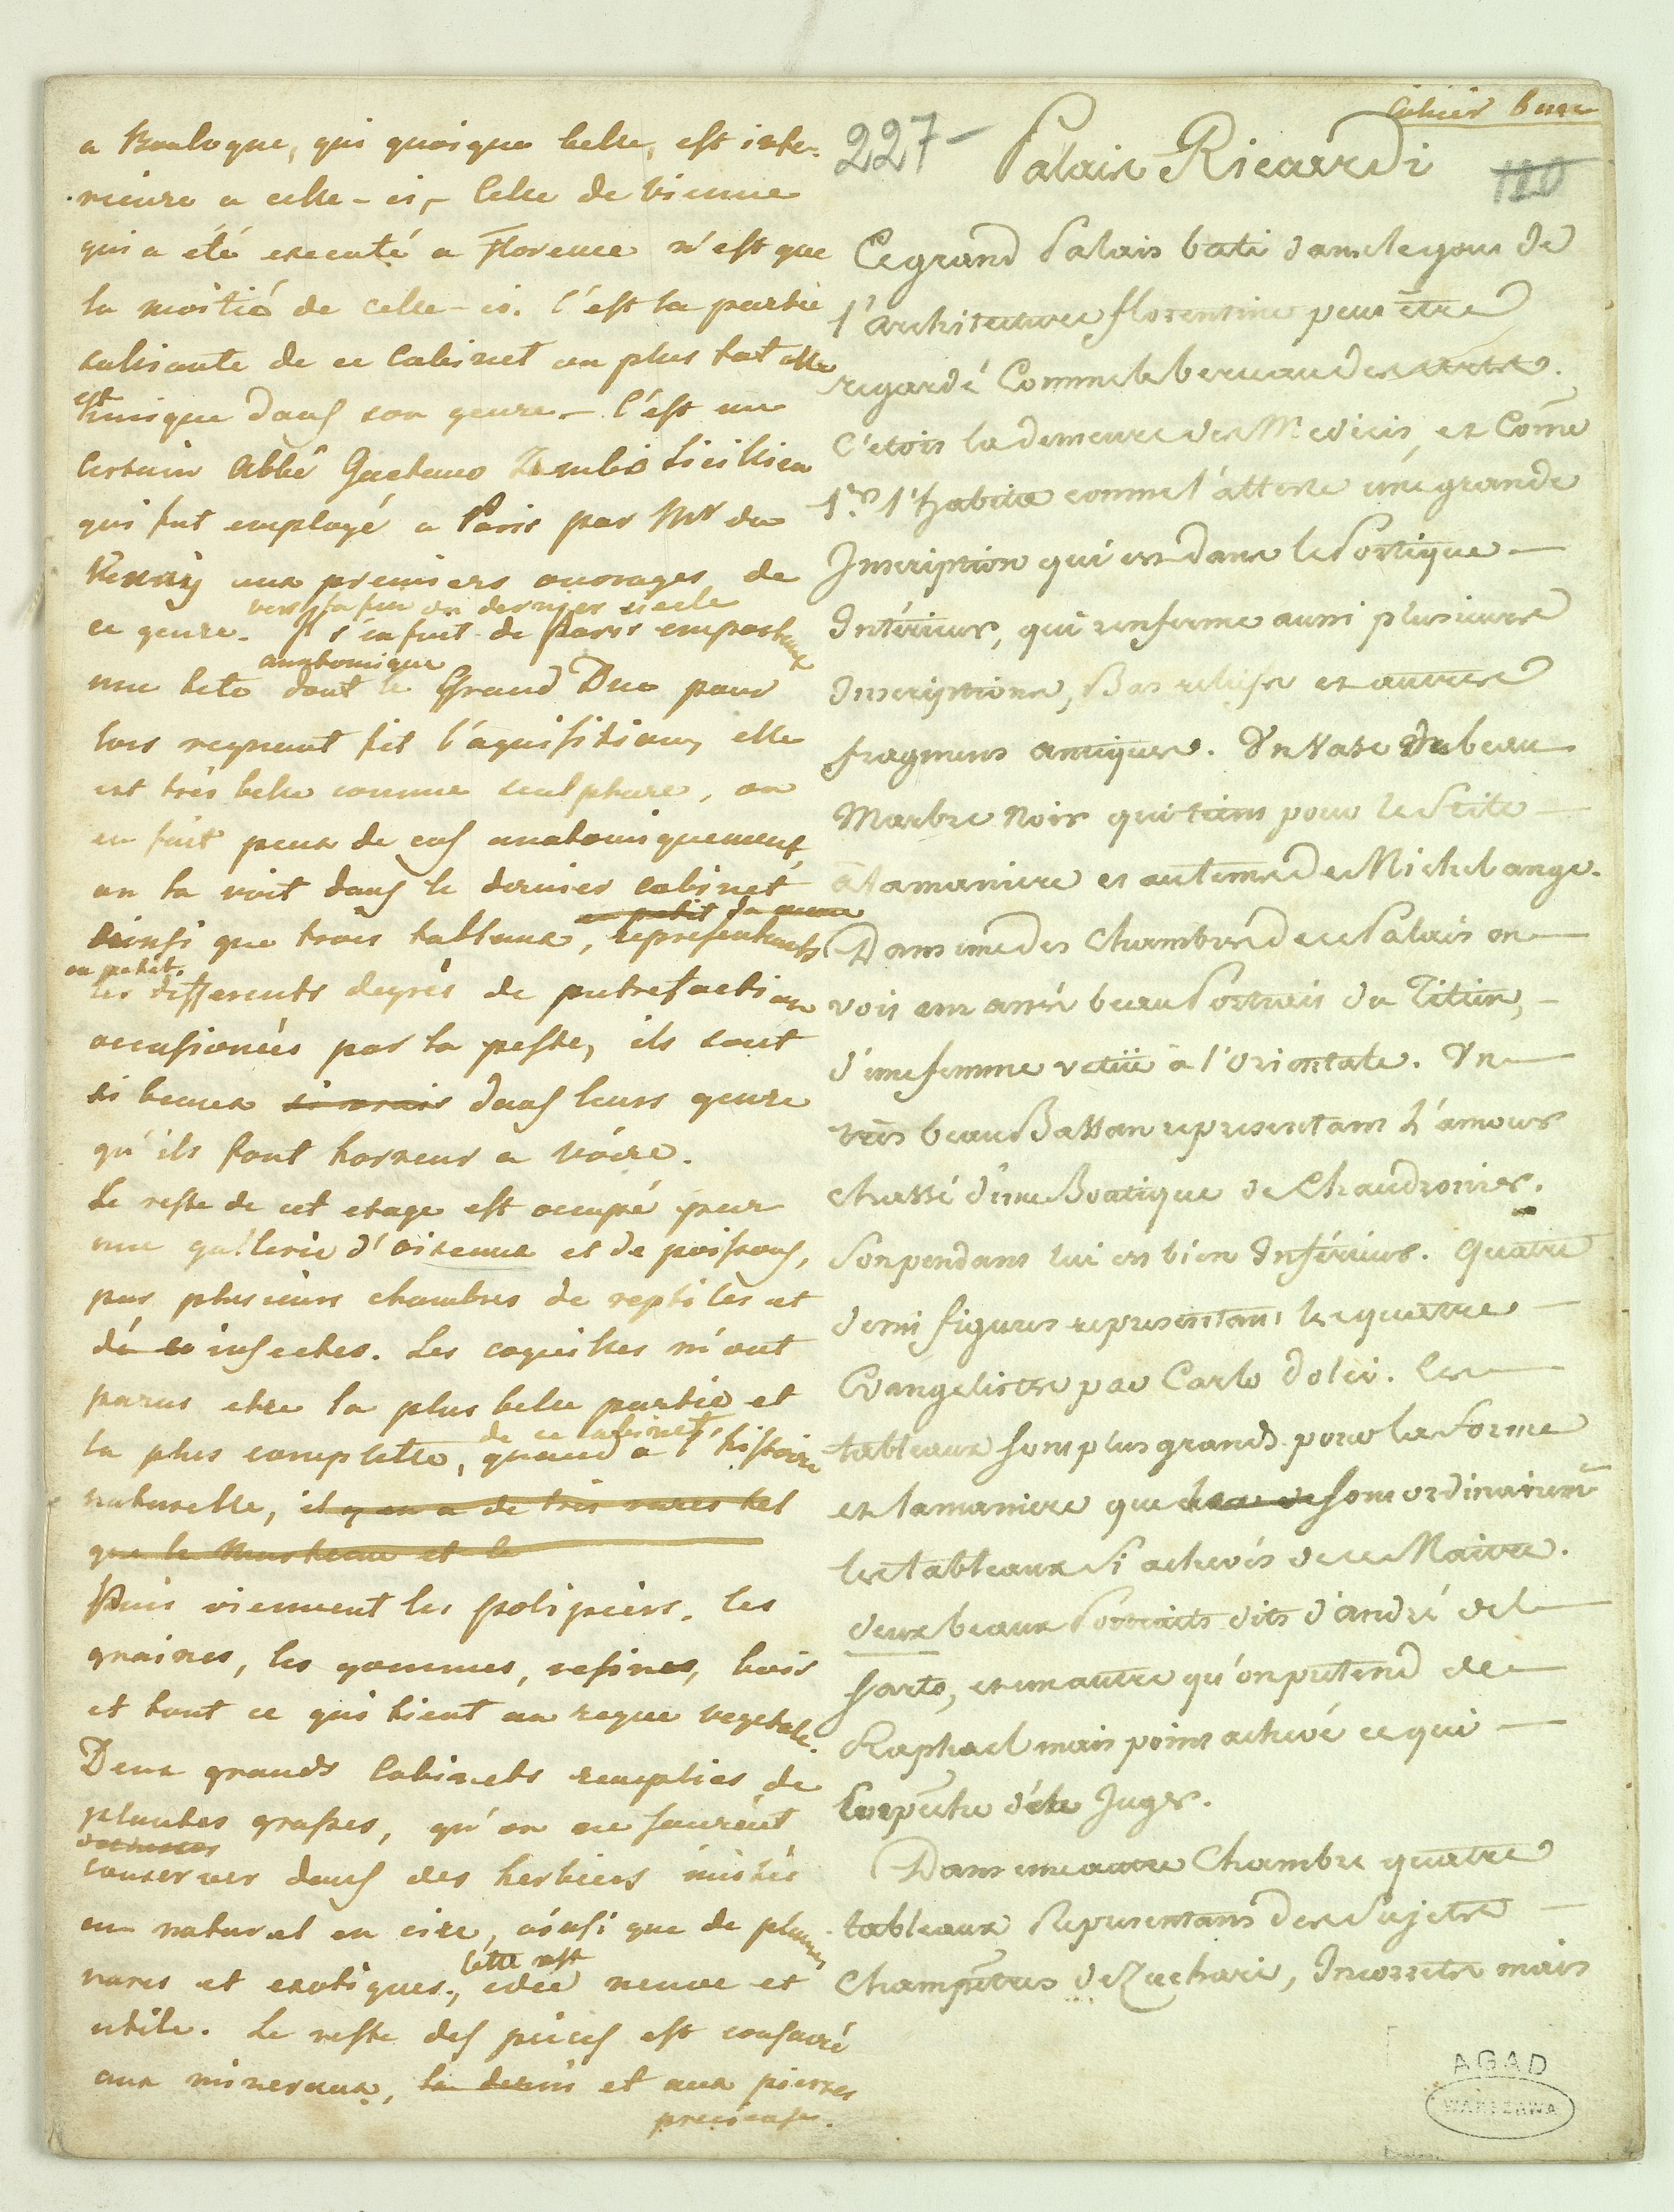 a Boulogne, qui quoique belle, est infe-
rieure a celle-ci, Celle de Vienne
qui a été executé a Florence n'est que
la moitié de celle-ci. C'est la partie
saliante de ce Cabinet un plus tot elle
est unique dans son genre. C'est un
certain Abbé Gaetano Zumbo Sicilien
qui fut employé a Paris par Mr du
Verny aux premiers ouvrages de
vers la fin du dernier siecle
ce genre. Il s'enfuit de Paris emportant
anatomique
une tete dont le Grand Duc pour
lors regnant fit l'aquisition, elle
est très belle comme sculpture, on
en fait peux de cas anatomiquement,
on la voit dans le dernier cabinet
en petit
ainsi que trois tableaux, representants
en petit
les differents degrés de putrefaction
occasionées par la peste, ils sont
si beaux si vrais dans leurs genre
qu'ils font horreur a voire.
Le reste de cet etage est occupé par
une gallerie d'oiseaux et de poissons,
par plusieurs chambres de reptiles et
d'insectes. Les coquilles m'ont
parus etre la plus belle partie et
de ce cabinet,
la plus complette, quand a l'histoire
naturelle, il y en a de très rares tel
que le Marteau et le
Puis viennent les polipiers, les
graines, les gommes, resines, bois
et tout ce qui tient au regne vegetale.
Deux grands Cabinets remplies de
plantes grasses, qu'on ne sauroit
conserver dans des herbiers imités
au naturel en cire, ainsi que de plantes
Cette est
rares et exotiques, idée neuve et
utile. Le reste des pieces est consacré
aux mineraux, et aux pierres
precieuses.
Cahier
227- Palais Ricardi
120
Ce grand Palais bati dans le gout de
l'architecture florentine peut être
regardé Comme le berceau des arts.
C'etoit la demeure des Medicis, et Côme
1er l'habita comme l'atteste une grande
Inscription qui est dans le Portique
Intérieur, qui renferme aussi plusieurs
Inscriptions, Bas reliefs et autres
fragmens antiques. Un Vase du beau
Marbre Noir qui tient pour le Stile
à la maniere et au tems de Michel ange.
Dans une des Chambres de ce Palais on
voit un assés beau Portrait du Titien,
d'une femme vetüe à l'Orientale. Un
très beau Bassan representant L'amour
Chassé d'une Boutique de Chaudronier.
Son pendant lui est bien Inférieur. Quatre
demi figures representant les quatre
Evangelistes par Carlo Dolci. Les
tableaux sont plus grands pour la forme
et la maniere que ne sont ordinairemt
les tableaux Si achevés de ce Maitre.
deux beaux Portraits dits d'André del
Sarto, et un autre qu'on pretend de
Raphael mais point achevé ce qui
Empêche d'etre Juger.
Dans une autre Chambre quatre
tableaux Representans des Sujets
Champêtres de Zuchari, Incorrects mais
AGAD
WARSZAWA